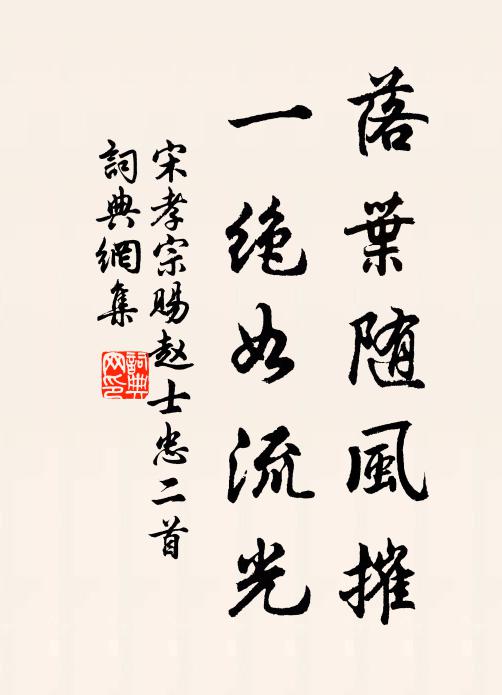 落葉随風摧
一絶如流光
宋孝宗賜赵士忠二首
詞典網集
詞典
网印